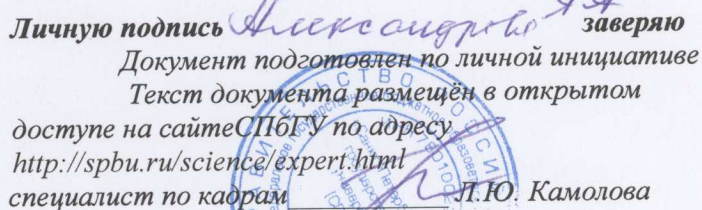 Личную подпись Александрова АА заверяю
Документ подготовлен по личной инициативе
Текст документа размещён в открытом
доступе на сайтеСПбГУ по адресу
http://spbu.ru/science/expert.html
специалист по кадрам Л.Ю. Камолова